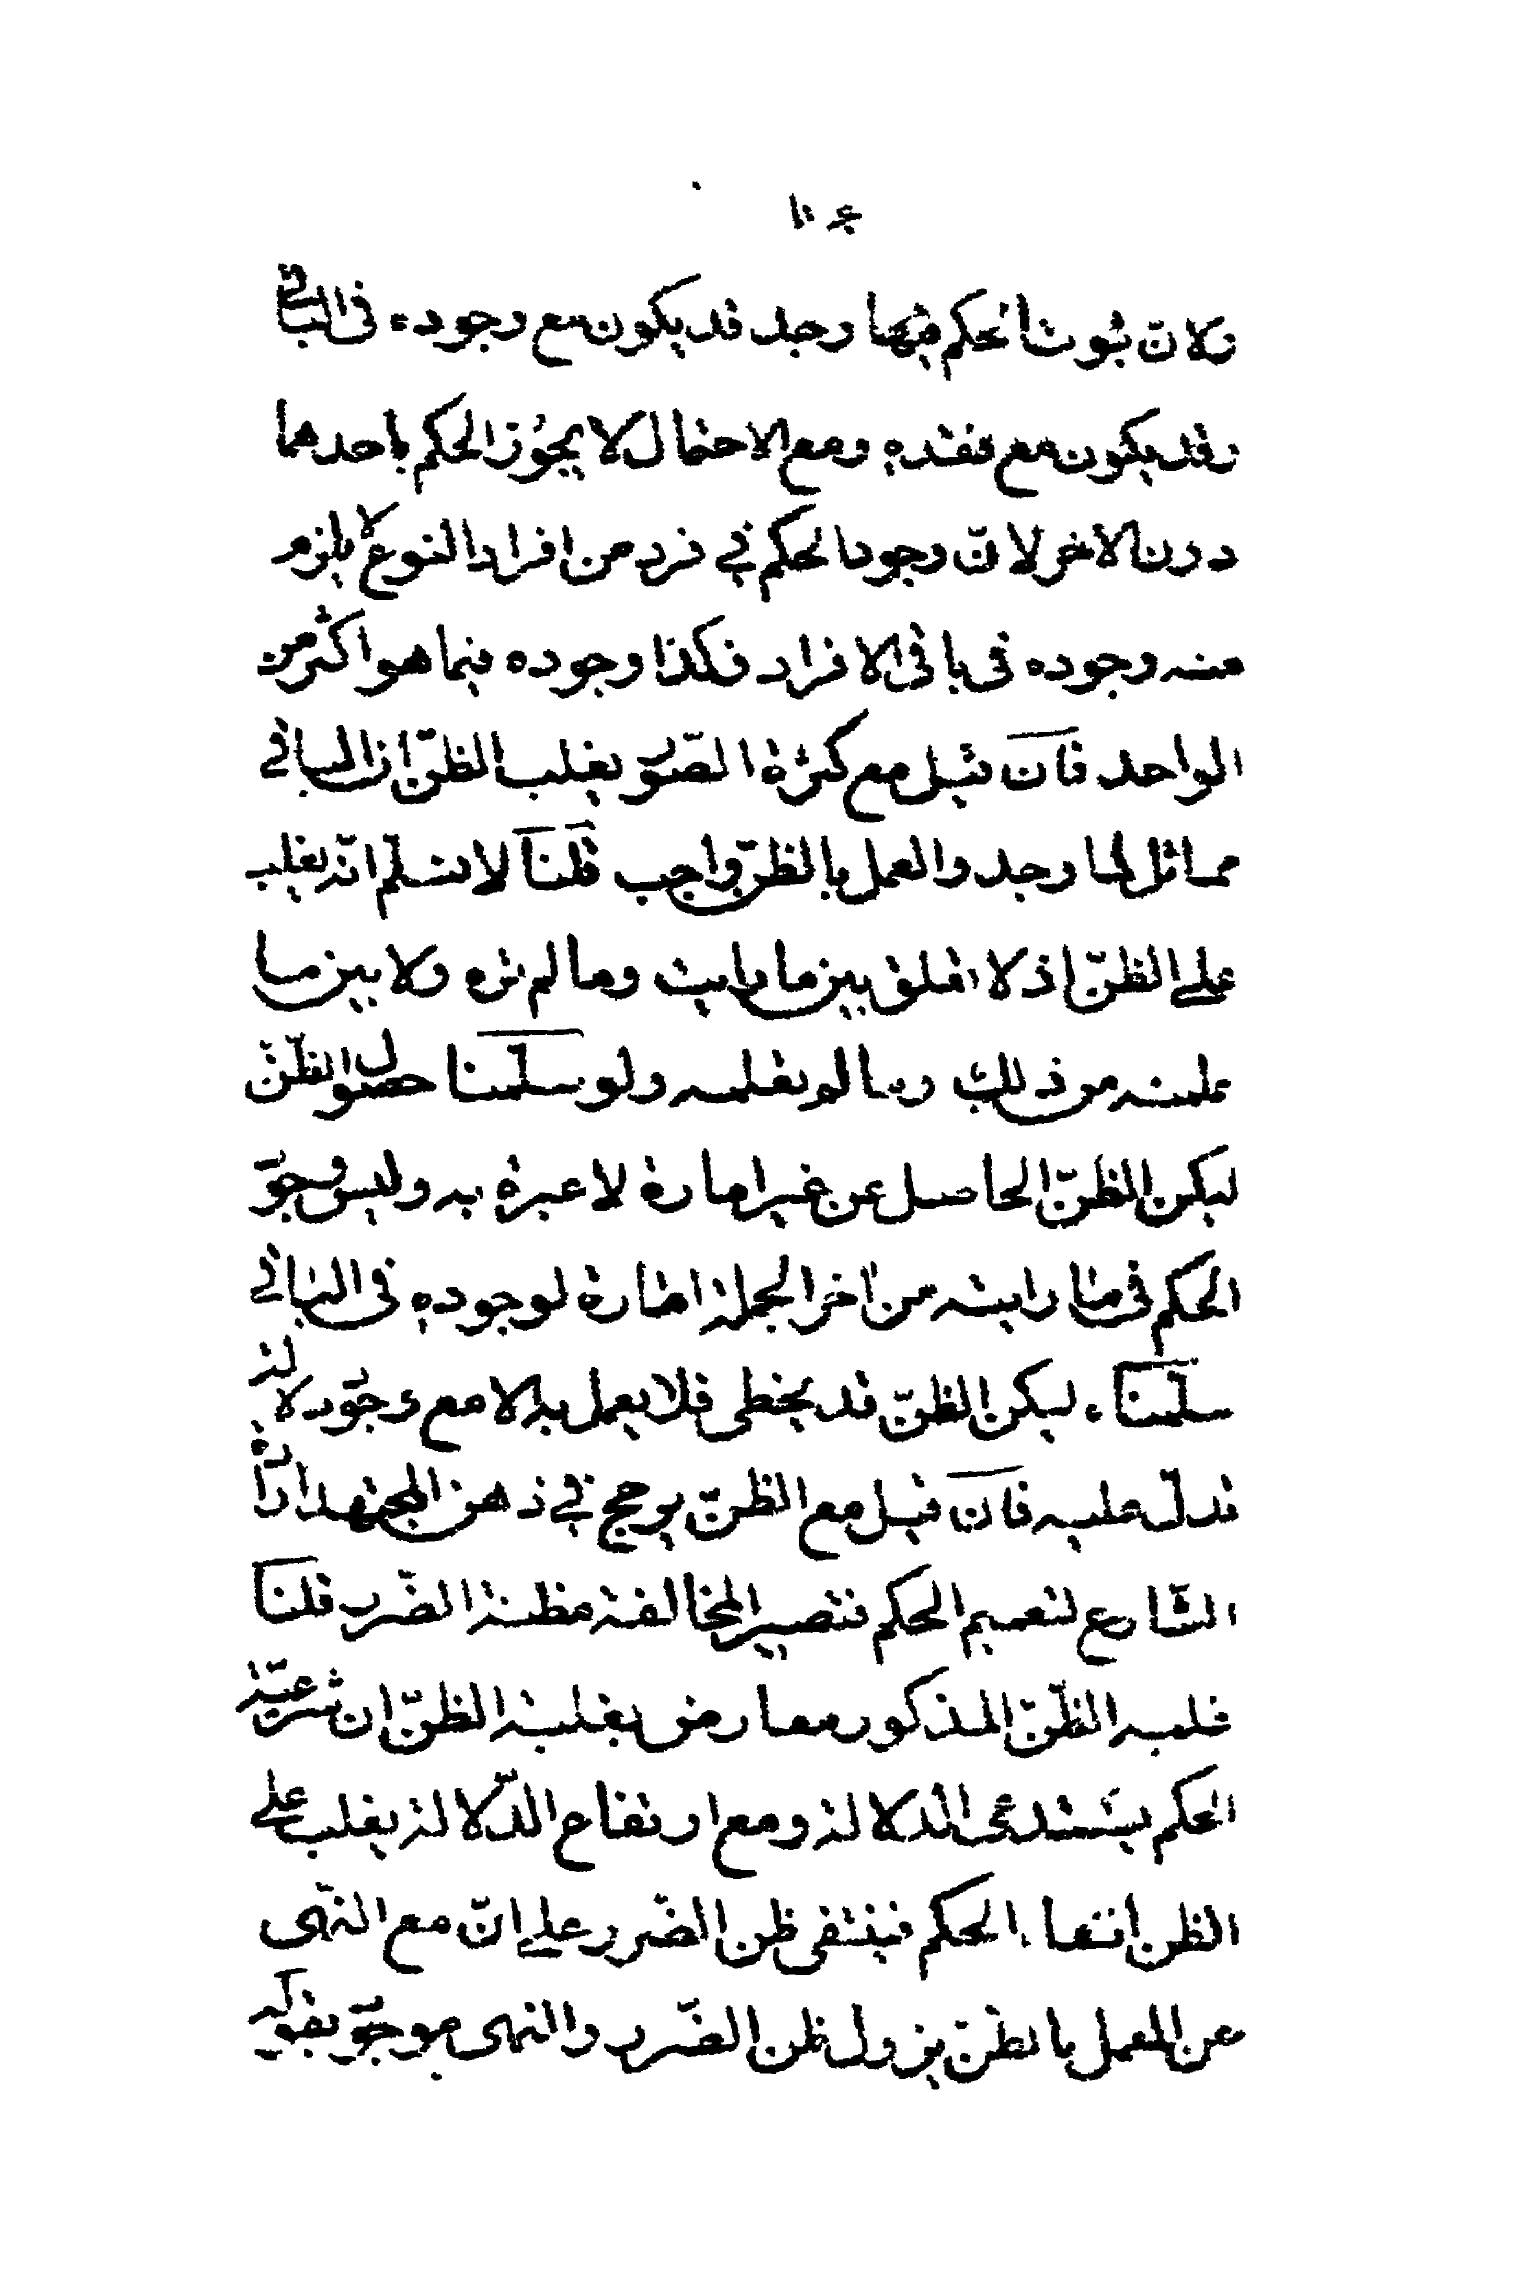 فلانّ ثبوت الحكم فيها وجد قد يكون مع وجوده فى الباقي
وقد يكون مع فقده ومع الاحتمال لا يجوز الحكم باحدهما
دون الاخر لانّ وجود الحكم في فرد من افراد النوع لا يلزم
منه وجوده فى باقى الافراد فكذا وجوده فيما هو اكثر من
الواحد فان قيل مع كثرة الصّور يغلب الظنّ ان الباقي
مماثل لما وجد والعمل بالظنّ واجب قلنا لا نسلّم انّه يغلب
على الظنّ اذ لا تعلق بين ما رايت وما لم تره ولا بين ما
علمته من ذلك وما لم تعلمه ولو سلّمنا حصول الظنّ
ليكن الظنّ الحاصل عن غير امارة لا عبرة به وليس وجود
الحكم فى ما رايته من اخر الجملة امارة لوجوده فى الباقي
سلّمنا ليكن الظنّ قد يخطى فلا يعمل به الا مع وجود دلالة
تدلّ عليه فان قيل مع الظنّ يرجح في ذهن المجتهد ارادة
الشّارع لتعميم الحكم فتصير المخالفة مظنة الضّرر قلنا
غلبه الظنّ المذكور معارض بغلبة الظنّ ان شرعيّة
الحكم يستدعى الدلالة ومع ارتفاع الدّلالة يغلب على
الظن انتفا الحكم فينتفى ظن الضّرر على انّ مع النّهى
عن العمل بالظنّ يزول ظن الضّرر والنهى موجود بقوله